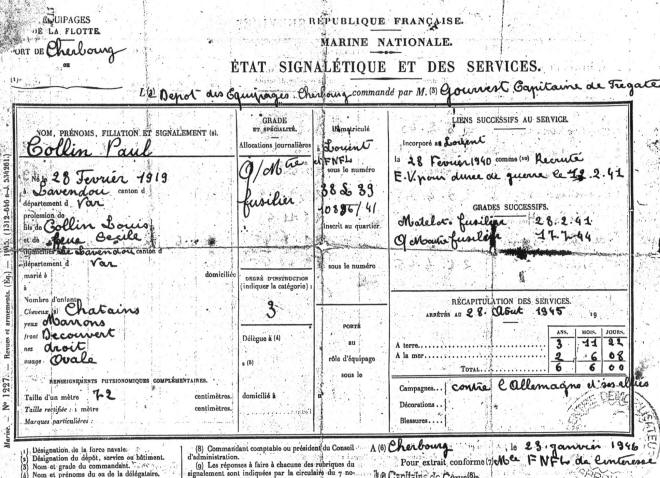 ÉQUIPAGES
DE LA FLOTTE.
PORT DE Cherbourg
OU
(1)
RÉPUBLIQUE FRANÇAISE.
MARINE NATIONALE.
ÉTAT SIGNALÉTIQUE ET DES SERVICES.
Dépot des Equipages Cherbourg commandé par M. (3) Gourvest Capitaine de Frégate
NOM, PRÉNOMS, FILIATION ET SIGNALEMENT
Collin Paul
Né le 28 Fevrier 1919
à Lavendou canton d
département d Var
profession de
fils de Collin Louis
et de Cecile
domiciliés Lavendou canton d
département d Var
marié à
domicilié
à
Nombre d'enfants
Cheveux Chatains
yeux Marrons
front Decouvert
nez droit
visage Ovale
RENSEIGNEMENTS PHYSIONOMIQUES COMPLÉMENTAIRES.
Taille d'un mètre 72 centimètres.
Taille rectifiée : 1 mètre centimètres.
Marques particulières :
GRADE
ET SPÉCIALITÉ.
Allocations journalières
Q/Mtre
fusilier
DEGRÉ D'INSTRUCTION
(indiquer la catégorie) :
3
Délégue à (4)
à (5)
domicilié à
Immatriculé
à Lorient
et FNFL
sous le numéro
inscrit au quartier
sous le numéro
PORTÉ
au
rôle d'équipage
sous le
LIENS SUCCESSIFS AU SERVICE.
Incorporé à Lorient
la 28 Fevrier 1940 comme Recruté
E.V. pour duree de guerre le 12.2.41
GRADES SUCCESSIFS.
Matelot fusilier 28.2.41
Q/Maitre fusilier 1.7.44
RÉCAPITULATION DES SERVICES.
ARRÊTÉS AU 28 Aout 1945 19
ANS. MOIS. JOURS.
A terre 3 11 22
A la mer 2 6 08
TOTAL 6 6 00
Campagnes contre l'Allemagne et ses alliés
Décorations
Blessures
Marine. — N° 1227. — Revues et armements.
(1) Désignation de la force navale.
(2) Désignation du dépôt, service ou bâtiment.
(3) Nom et grade du commandant.
(4) Nom et prénoms du ou de la délégataire.
(8) Commandant comptable ou président du Conseil
d'administration.
(9) Les réponses à faire à chacune des rubriques du
signalement sont indiquées par la circulaire du 7 no-
A (6) Cherbourg, le 23 janvier 1946
Pour extrait conforme (7) Mle FNFL de l'interessé